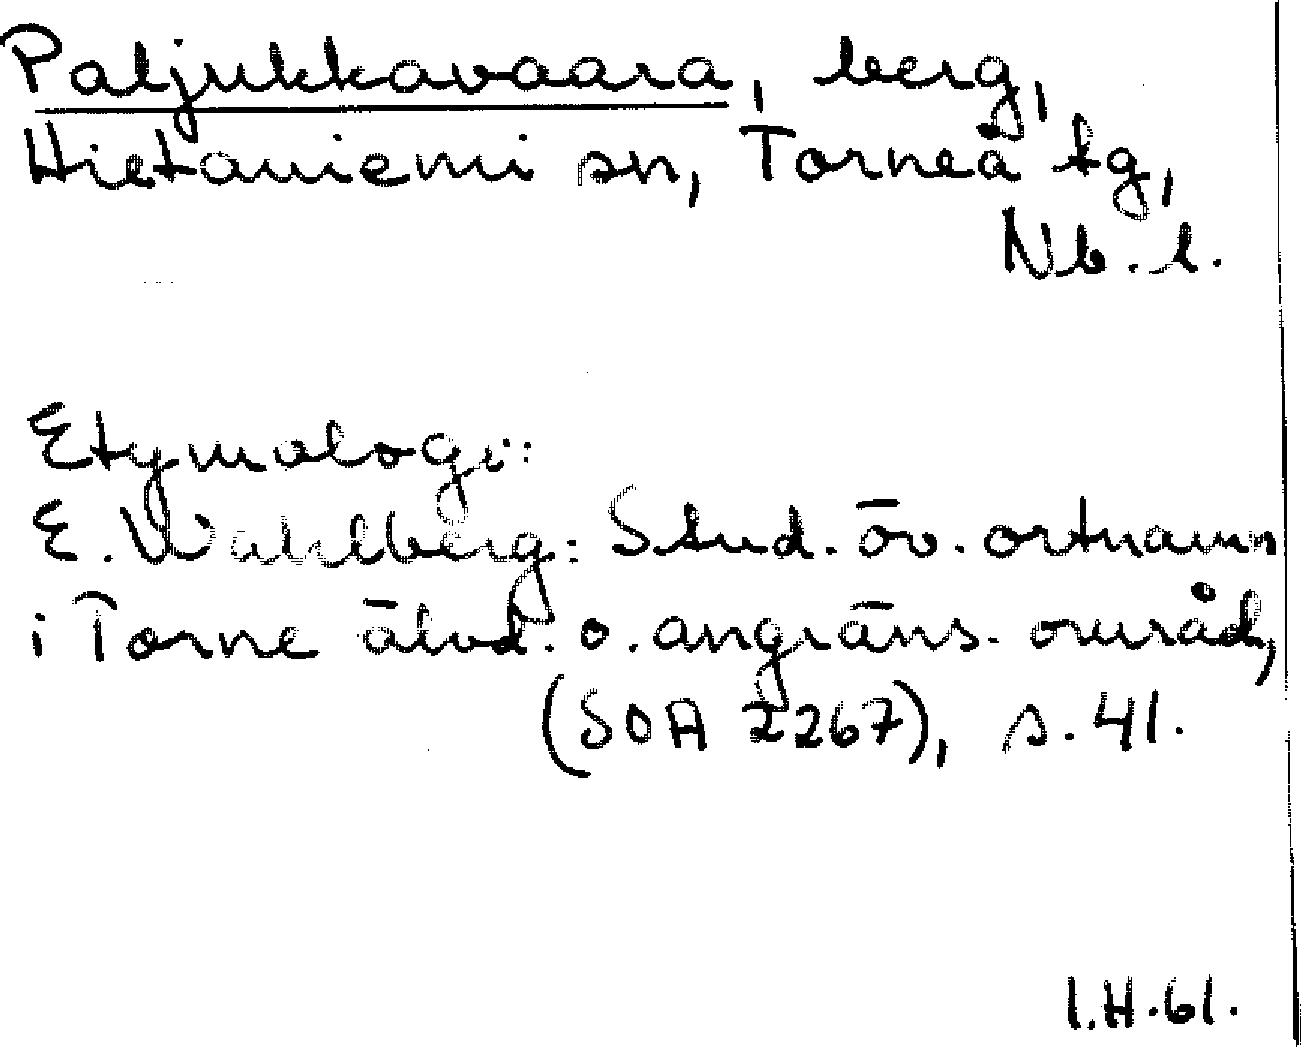 Paljukkavaara, berg,
Hietaniemi sn, Torneå tg,
Nb. l.
Etymologi:
E. Wahlberg: Stud. öv. ortnamn
i Torne älvd. o. angräns. områd,
(SOA 2267), s. 41.
I.H. 61.